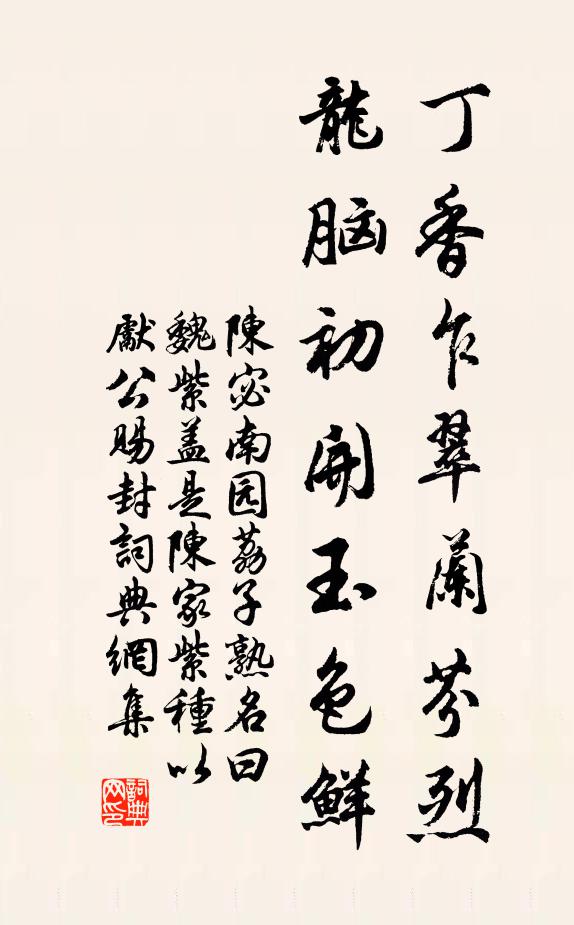 丁香乍翠蘭芬烈
龍脑初開玉色鮮
陳宓南园荔子熟名曰
魏紫盖是陳家紫種以
獻公賜封詞典網集
詞典
网印